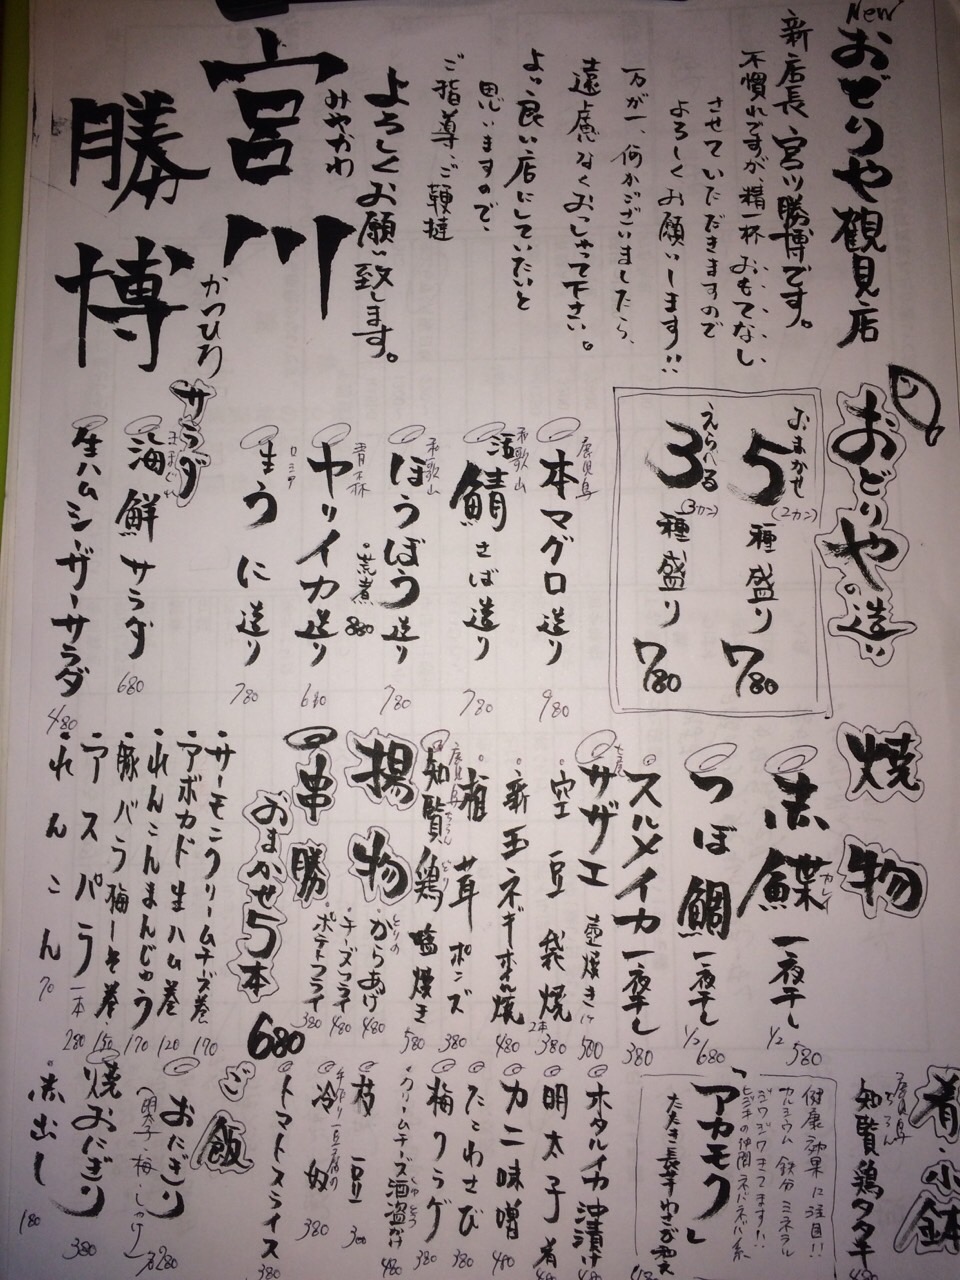 New
おどりや観見店
新店長 宮川勝博です。
不慣れですが、精一杯 おもてなし
させていただきますので
よろしくお願いします!!
万が一、何かございましたら、
遠慮なくおっしゃって下さい。
より良い店にしていたいと
思いますので、
ご指導、ご鞭撻
よろしくお願い致します。
みやかわ
宮川
勝博
かつひろ
おどりやの造り
おまかせ
5種盛り (2カン) 780
えらべる
3種盛り (3カン) 780
鹿児島
本マグロ造り 980
和歌山
活〆鯖 さば造り 780
和歌山
ほうぼう造り 780
・荒煮 880
青森
ヤリイカ造り 680
ロシア
生うに造り 780
サラダ
海鮮サラダ 680
生ハムシーザーサラダ 480
焼物
赤鰈 カレイ 一夜干し 1/2 580
つぼ鯛 一夜干し 1/2 680
スルメイカ 一夜干し 380
サザエ 壺焼き 1ケ 500
空豆袋焼 2本 380
新玉ネギホイル焼 480
椎茸ポンズ 380
鹿児島 ちらん どり
知覧鶏塩焼き 580
揚物
とりのからあげ 480
チーズフライ 480
ポテトフライ 380
串勝
おまかせ5本 680
・サーモンクリームチーズ巻 170
・アボカド生ハム巻 120
・れんこんまんじゅう 170
・豚バラ梅しそ巻 150
・アスパラ 一本 280
・れんこん 70
肴・小鉢
鹿児島 ちらん
知覧鶏タタキ
健康効果に注目!!
カルシウム 鉄分 ミネラル
ジワジワきてます!!
ヒジキの仲間 ネバネバ系
「アカモク」
たたき長芋わさび和え
ホタルイカ沖漬け 480
明太子 肴 480
カニ味噌 480
たこわさび 380
梅クラゲ 380
クリームチーズ酒盗がけ 480
枝豆 300
冷奴 380
トマトスライス 380
ご飯
おにぎり
(明太子・梅・しゃけ) 280
焼おにぎり 380
赤出し 180